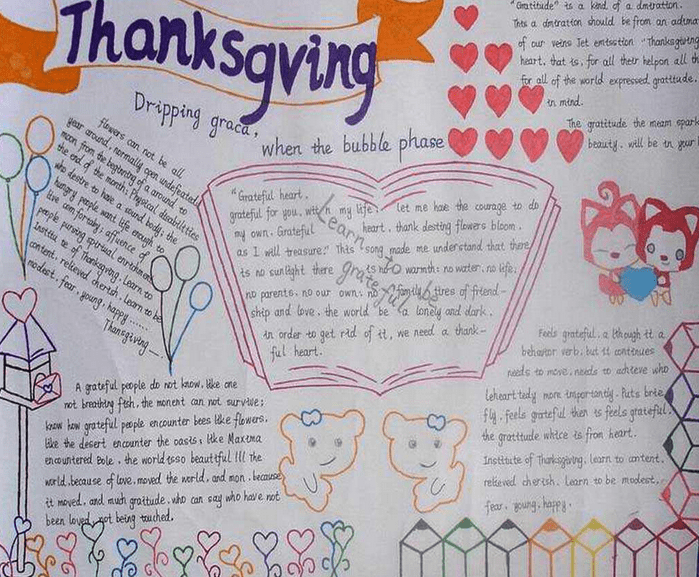 Thanksgving
Dripping graca,
when the bubble phase
"Gratitude" is a kind of a dmtration.
This a dmtration should be from an
of our veins Jet emitsstion "Thanksgiving
heart, that is, for all their helpon all th
for all of the world expressed gratitude,
in mind.
The gratitude the meam spark
beauty. will be in year
flowers can not be all
year around, normally open undefeated,
moon from the beginning of a around to
the end of the month; Physical disabilities
who desire to have a sound body; the
hungry people want life enough to
live comfortably; affluence of
people pursing spiritual enrichment
Institu te of Thanksgiving, learn to
content, relieved cherish, learn to be
modest, fear, young, happy ......
Thanksgiving
"Grateful heart,
grateful for you, with n my life, let me hae the courage to do
my own. Grateful heart, thank desting flowers bloom,
as I will treasure." This song made me understand that there
is no sunlight there is no warmth; no water, no life;
no parents, no our own; no family tires of friend-
ship and love, the world be a lonely and dark.
in order to get rid of it, we need a thank-
ful heart.
Learn to be
grateful
Feels grateful, a lthough it a
behavior verb, but it continues
needs to move, needs to achieve who
Leheart tedly more importantly. Puts brie
fly, feels grateful then is feels grateful,
the gratitude whice is from heart.
Institute of Thanksgiving, learn to content,
relieved cherish, Learn to be modest,
fear, young, happy.
A grateful people do not know, like one
not breathing fish, the monent can not survive;
know how grateful people encounter bees like flowers,
like the desert encounter the oasis, like Maxima
encountered Bole, the world isso beautiful !!! the
world, because of love, moved the world, and mon, because
it moved, and much gratitude, who can say who have not
been loved, not being touched.